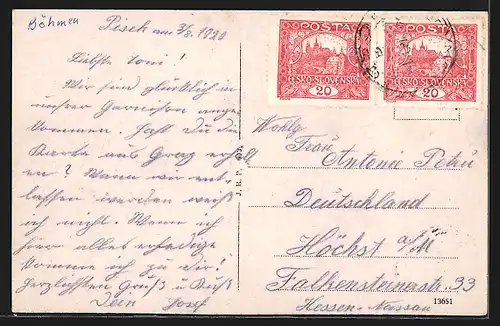 Böhmen
Pisek am 3/8. 1920
Liebste Toni!
Wir sind glücklich in
unsrer Garnison ange-
kommen. Hast Du die
Karte aus Graz erhalt
en? Wann wir ent-
lassen werden weiß
ich nicht. Wenn ich
hier alles erledigt
komme ich zu dir!
Herzlichsten Gruß u. Kuß
Dein Josef
POSTA
ČESKO-SLOVENSKÁ
20
POSTA
ČESKO-SLOVENSKÁ
20
J. R. P.
Wohlg
Frau
Antonie
Deutschland
Höchst a/M
Falkensteinerstr. 33
Hessen-Nassau
13651